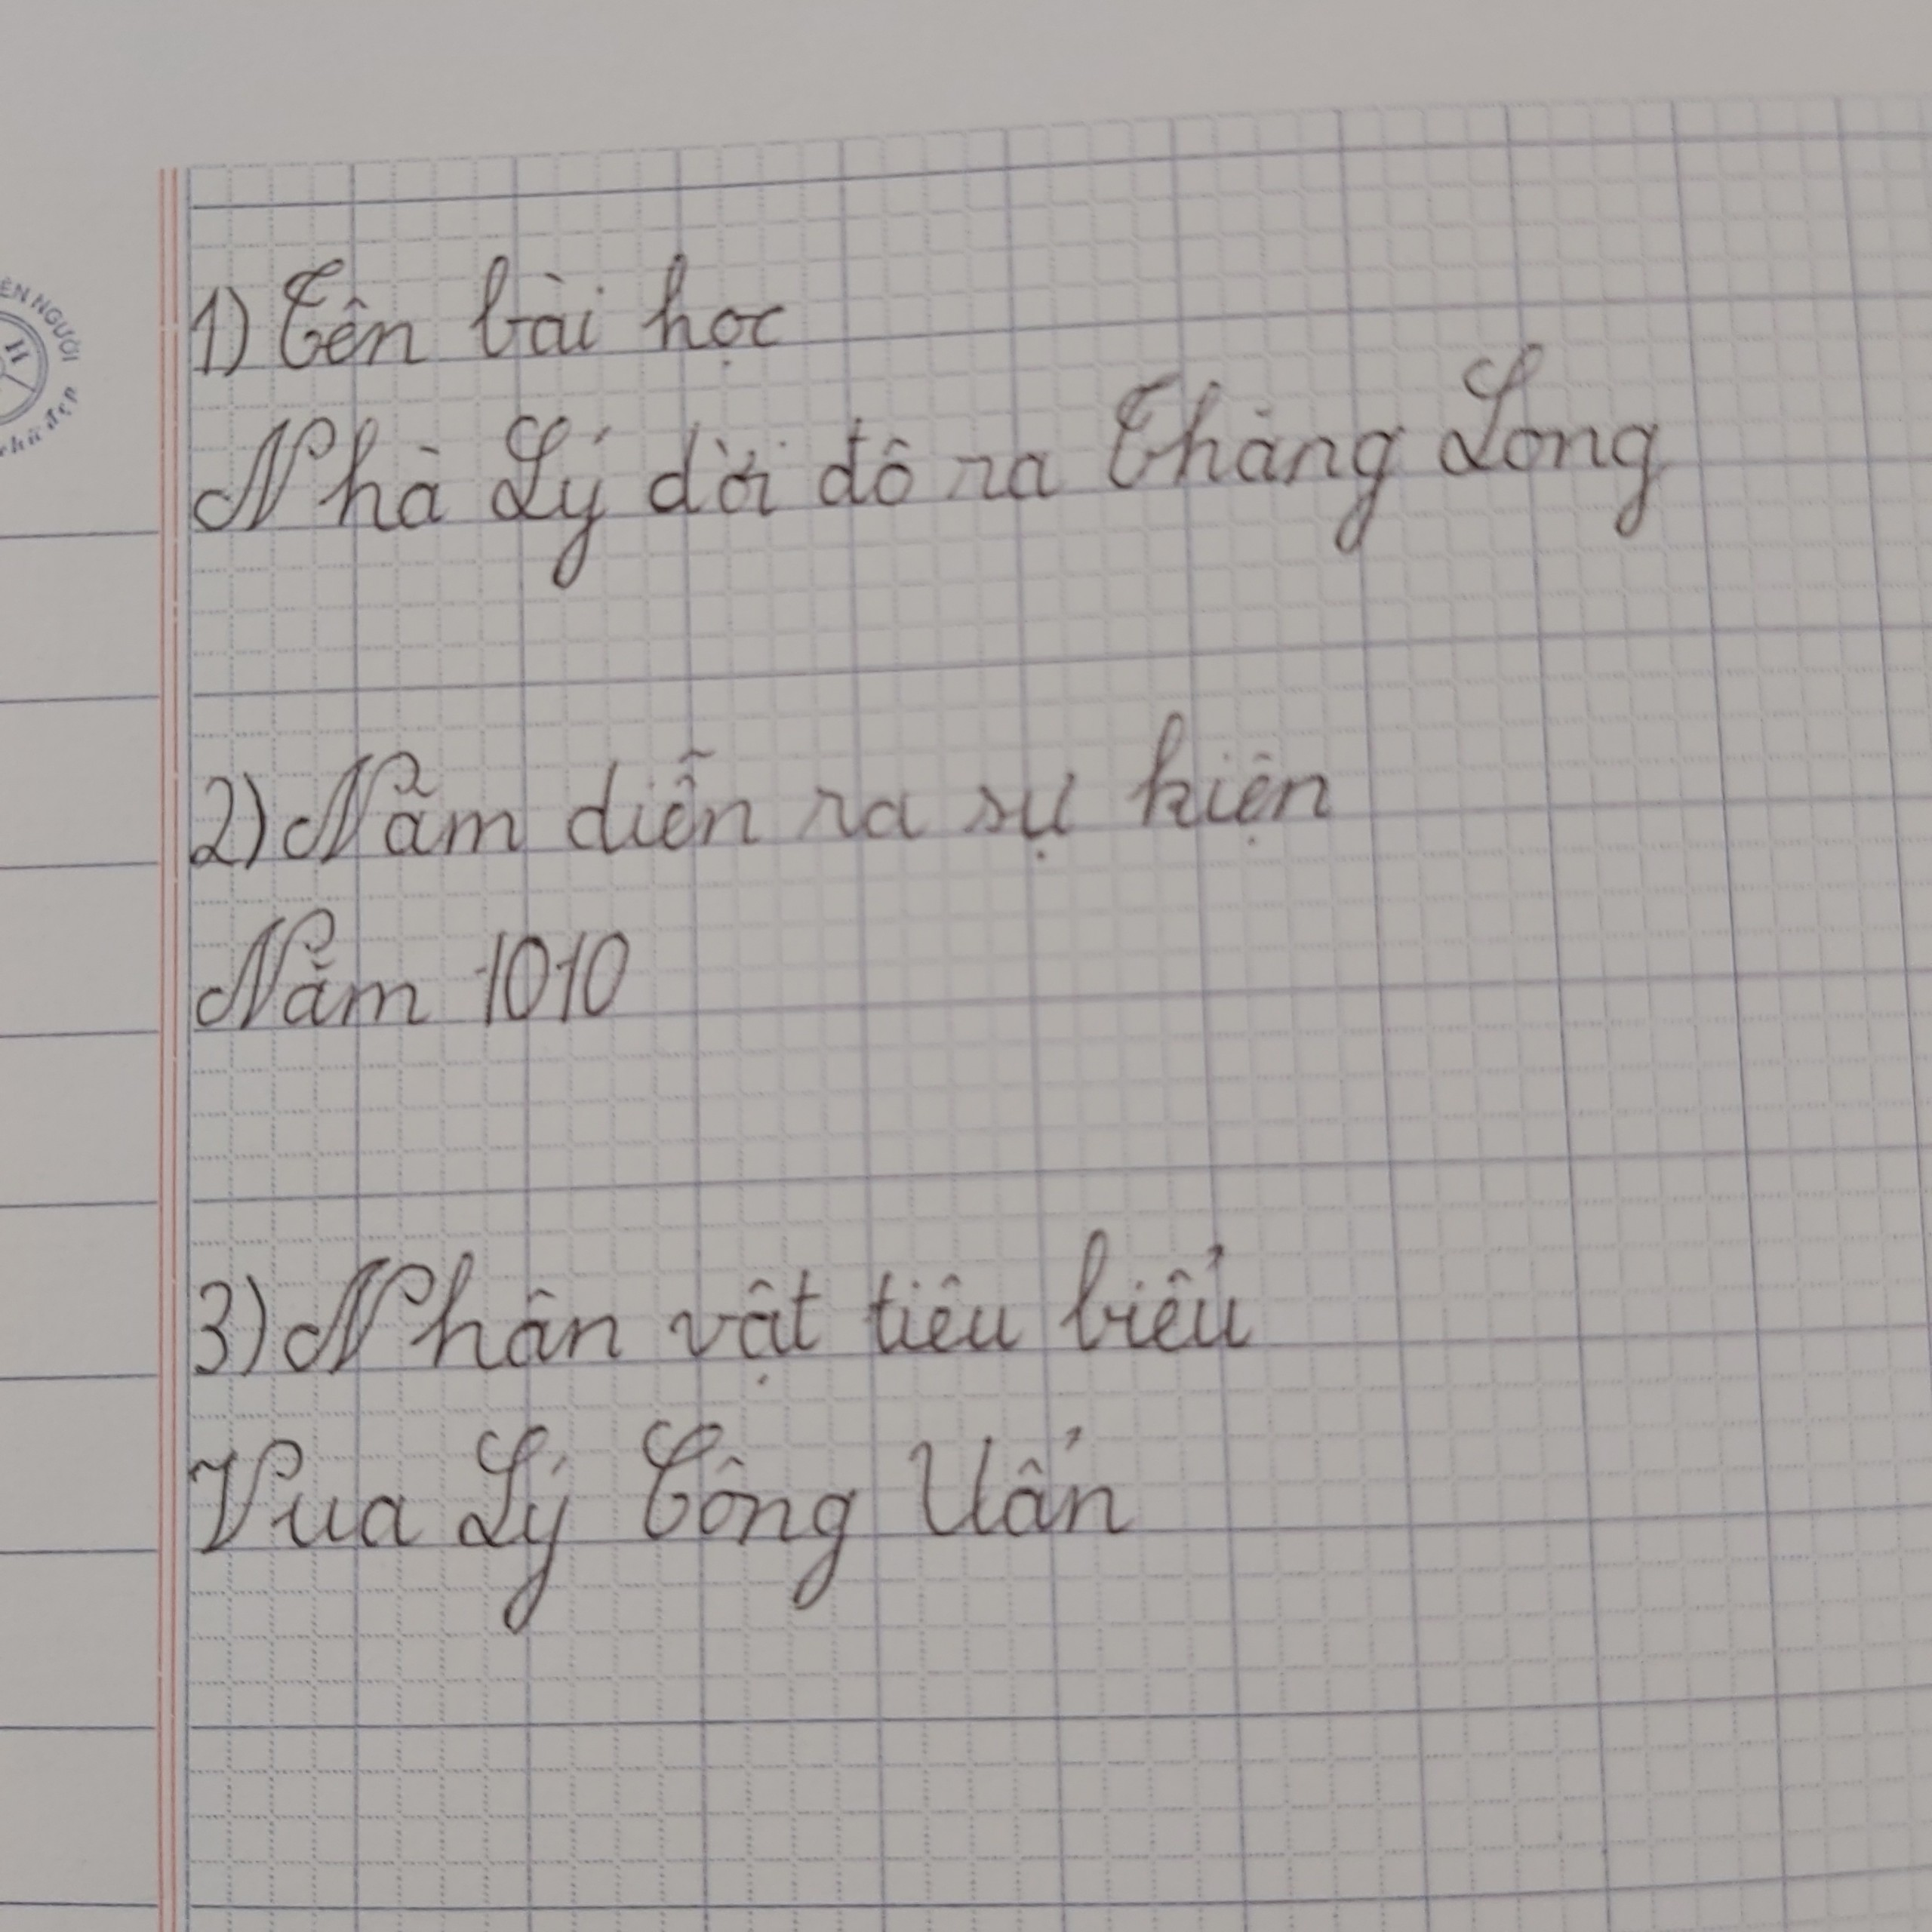 ÊN NGƯỜI
H
chữ đẹp
1) Tên bài học
Nhà Lý dời đô ra Thăng Long
2) Năm diễn ra sự kiện
Năm 1010
3) Nhân vật tiêu biểu
Vua Lý Công Uẩn